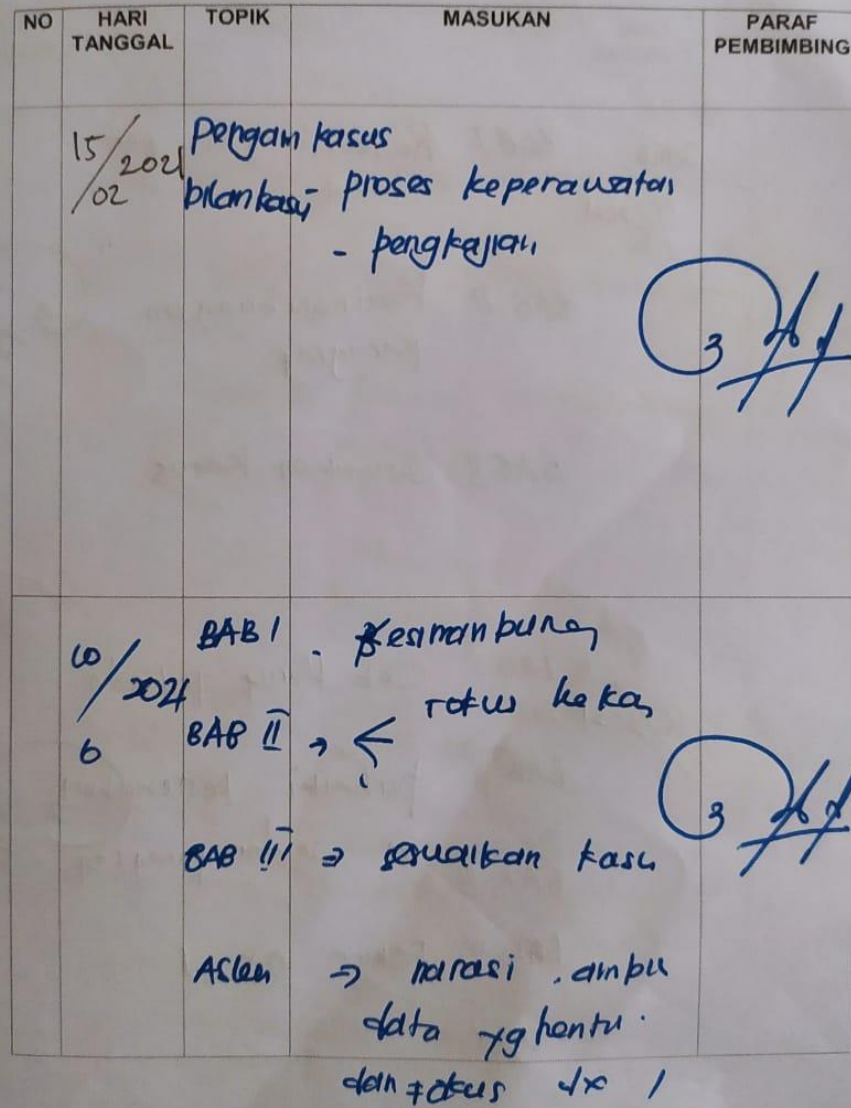 NO HARI TANGGAL TOPIK MASUKAN PARAF PEMBIMBING
15/02 2021
Pengam kasus
proses keperawatan
- pengkajian
10/6 2021
BAB I . Kesinambung
BAB II → fokus ke kas
BAB III ⇒ sesuaikan kasu
Askep ⇒ narasi .
data yg
dan fokus dx 1